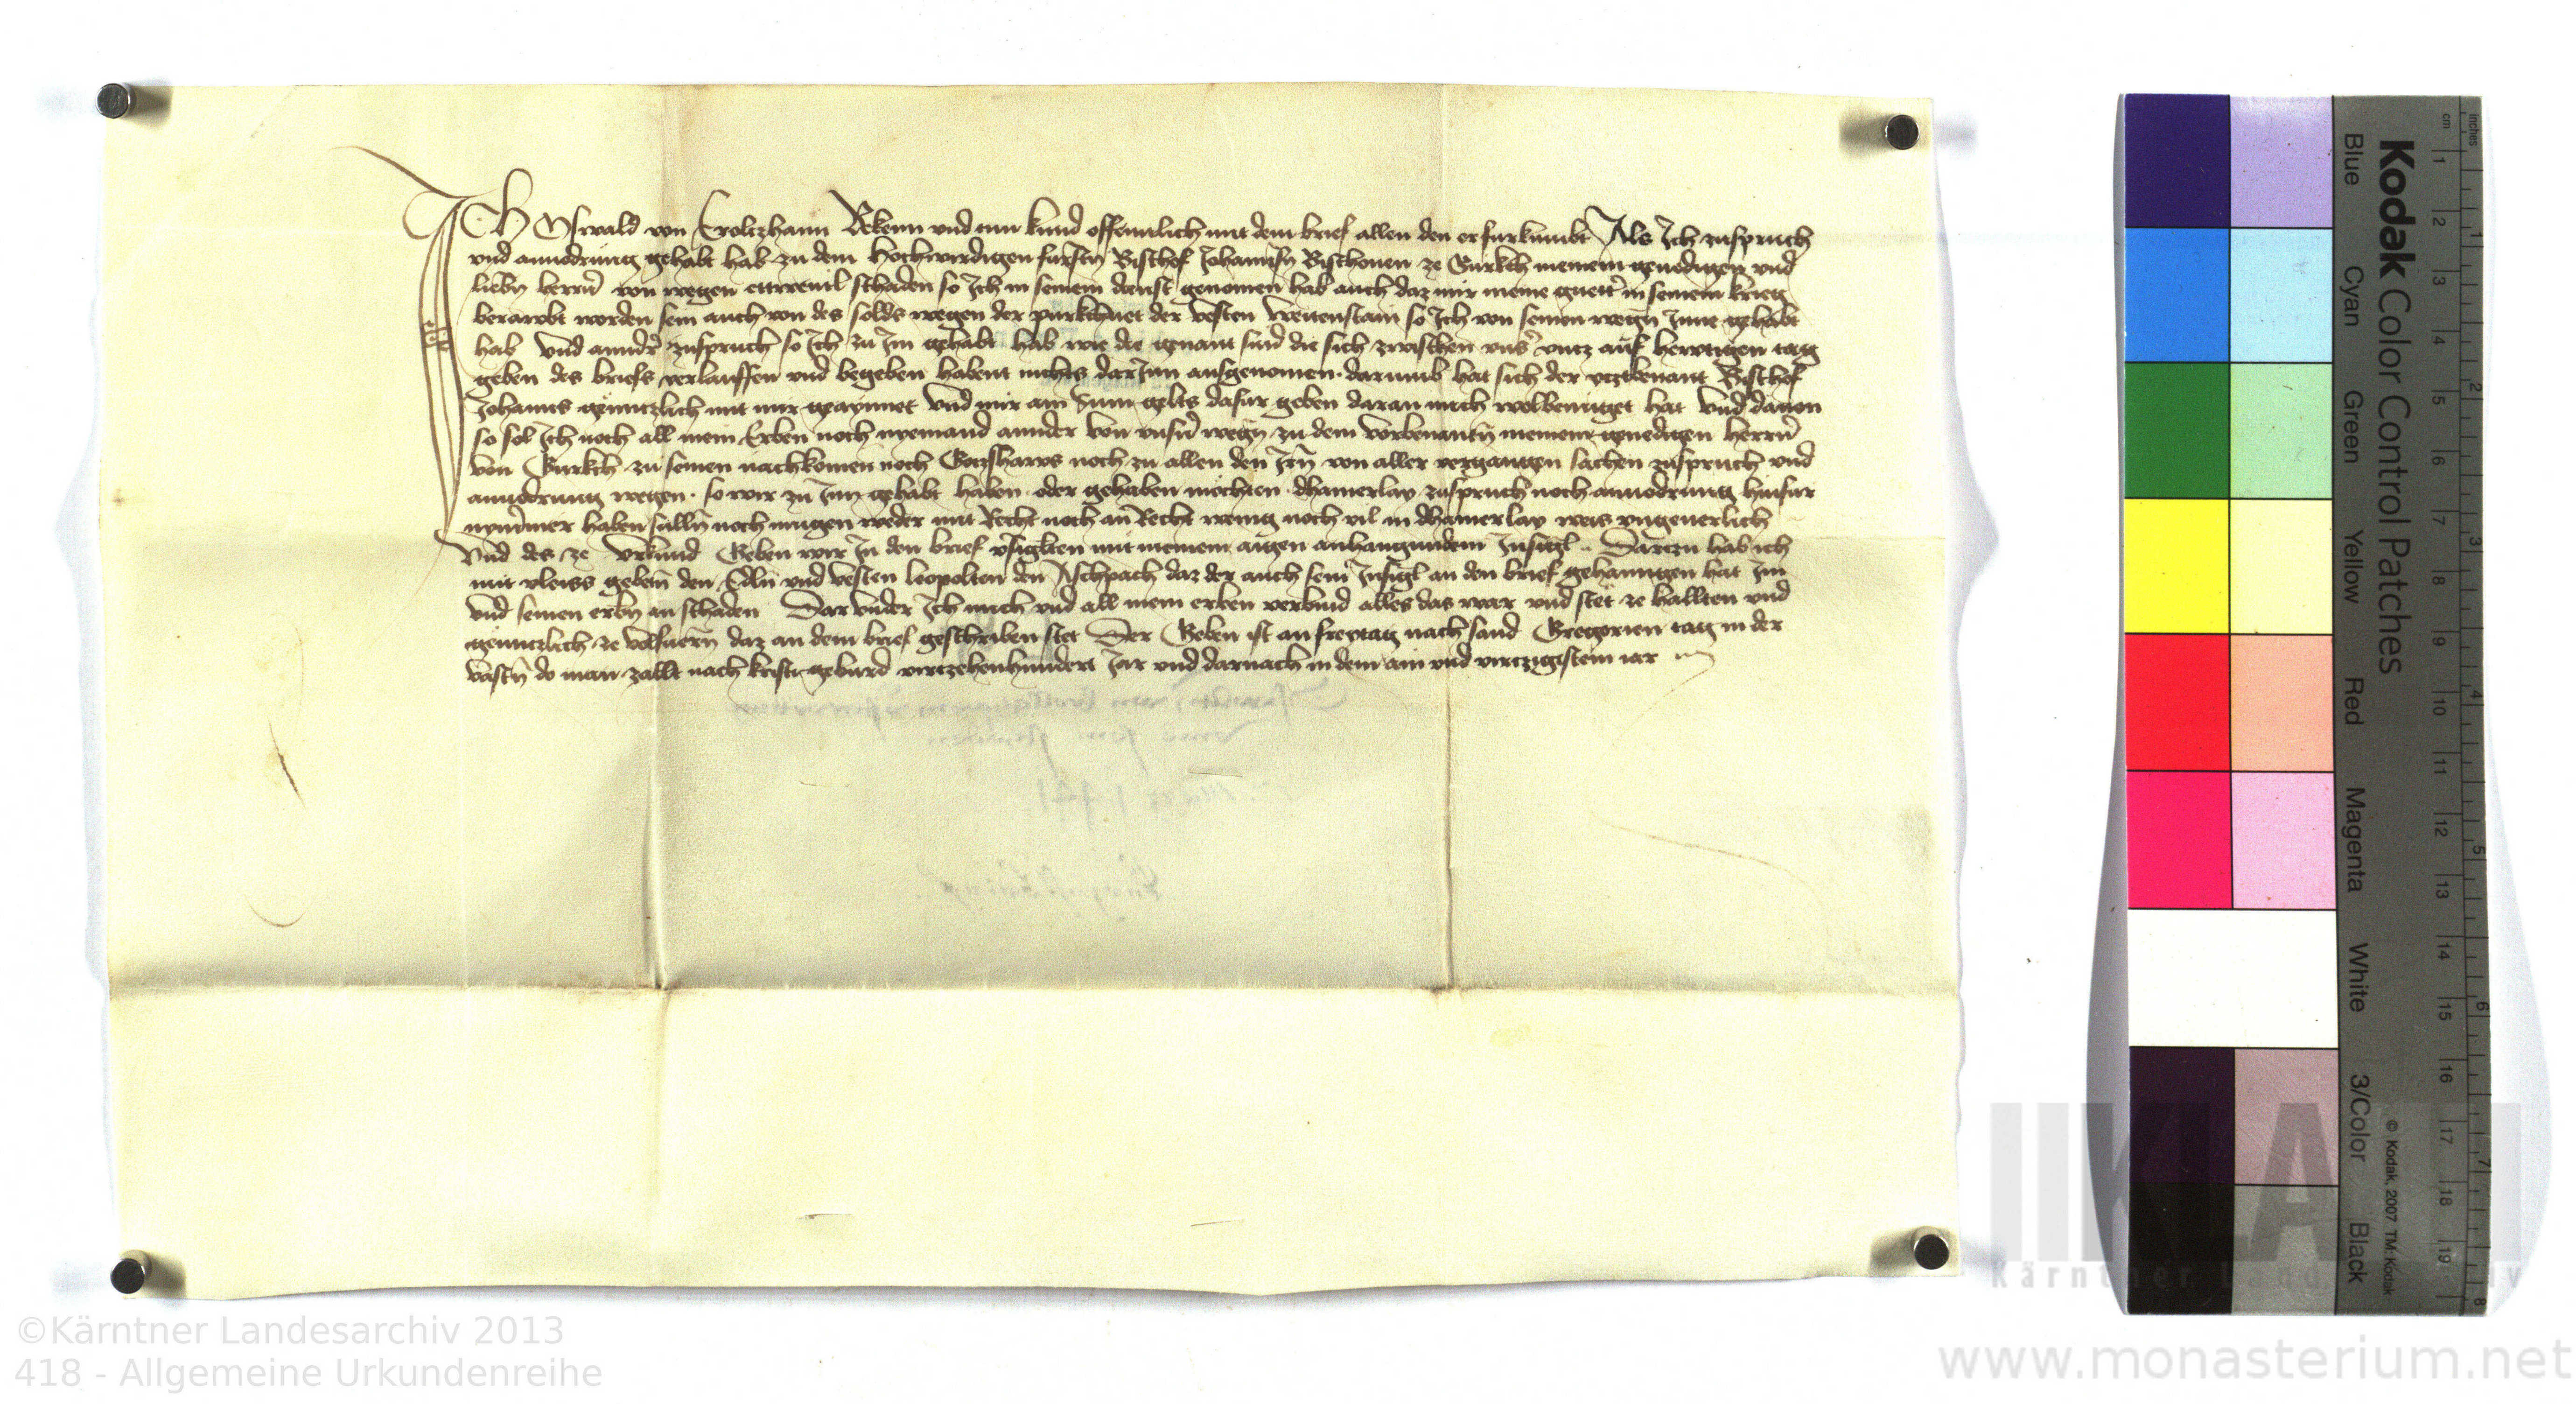 Ich Oswald von Eroltzhaim Bekenn vnd tun kund offennlich mit dem brief allen den er furkumbt Als Ich zuspruch
vnd anuodrung gehabt hab zu dem Hochwirdigen fursten Bischof Johannsen Bischouen ze Gurkch meinem genedigen vnd
lieben herrn von wegen ettweuil schaden so Ich in seinem dinst genomen hab auch daz mir meine guetter in seinem krieg
beraubt worden sein auch von des solds wegen der purkhuet der Vesten Weitenstain so Ich von seinen wegen Inne gehabt
hab Vnd annder zuspruch so Ich zu Im gehabt hab wie die genant sind die sich zwischen vnser vntz auf hewtigen tag
geben des briefs verlauffen vnd begeben habent nichts darInn ausgenomen darumb hat sich der vorbenant Bischof
Johanns genntzlich mit mir geaynnet Vnd mir ain Sum gelts dafur geben daran mich wolbenuget hat Vnd dauon
so sol Ich noch all mein Erben noch nyemand annder von vnsern wegen zu dem Vorbenanten meinem genedigen herrn
von Gurkch zu seinen nachkomen noch Gotzhaws noch zu allen den Irn von aller vergangen sachen zuspruch vnd
anuodrung wegen so wir zu Inn gehabt haben oder gehaben mochten dhainerlay zuspruch noch anuodrung hinfur
nymermer haben sullen noch mugen weder mit Recht noch an Recht wenig noch vil in dhainerlay weis vngeuerlich
Vnd des ze vrkund Geben wir In den brief versiglten mit meinem aigen anhangundem Insigl Dartzu hab ich
mit vleiss gebetn den Edln vnd vesten leopolten den Aschpach daz der auch sein Insigl an den brief gehanngen hat Im
Vnd seinen erben an schaden Darvnder Ich mich vnd all mein erben verbind alles das war vnd stet ze hallten vnd
genntzlich ze volfuern daz an dem brief geschriben stet Der Geben ist an freytag nach sand Gregorien tag in der
vasten do man zallt nach kristi geburd virtzehenhundert Jar vnd darnach in dem ain vnd virtzigistem iar
Kodak Color Control Patches
Blue Cyan Green Yellow Red Magenta White 3/Color Black
© Kodak, 2007 TM: Kodak
inches 1 2 3 4 5 6 7 8
cm 1 2 3 4 5 6 7 8 9 10 11 12 13 14 15 16 17 18 19
©Kärntner Landesarchiv 2013
418 - Allgemeine Urkundenreihe
www.monasterium.net